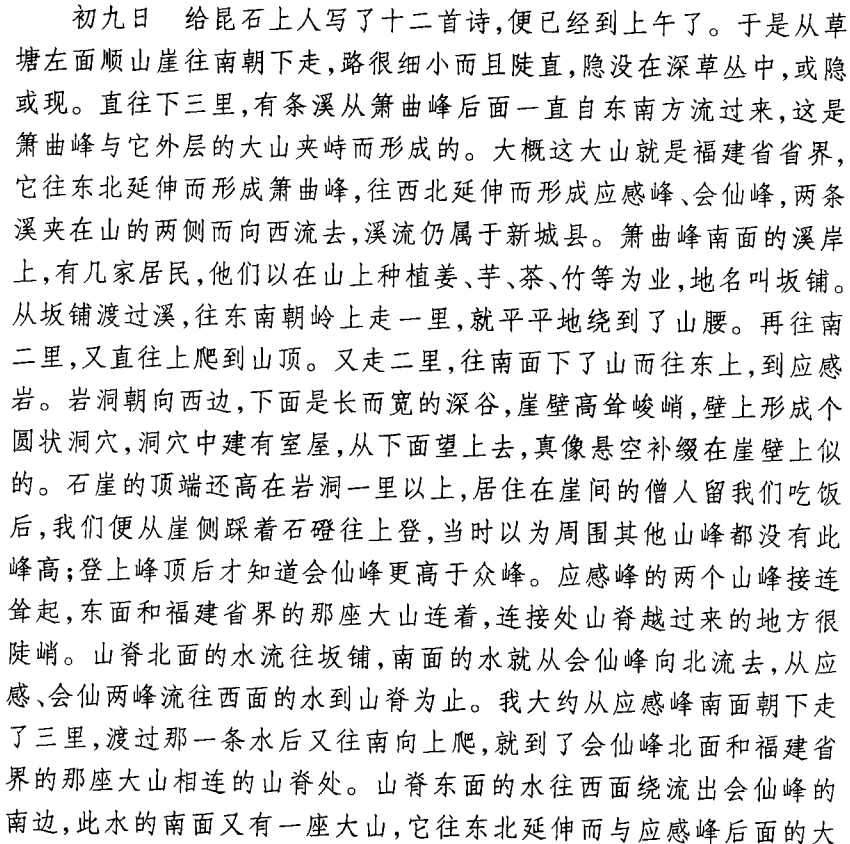 初九日　给昆石上人写了十二首诗,便已经到上午了。于是从草
塘左面顺山崖往南朝下走,路很细小而且陡直,隐没在深草丛中,或隐
或现。直往下三里,有条溪从箫曲峰后面一直自东南方流过来,这是
箫曲峰与它外层的大山夹峙而形成的。大概这大山就是福建省省界,
它往东北延伸而形成箫曲峰,往西北延伸而形成应感峰、会仙峰,两条
溪夹在山的两侧而向西流去,溪流仍属于新城县。箫曲峰南面的溪岸
上,有几家居民,他们以在山上种植姜、芋、茶、竹等为业,地名叫坂铺。
从坂铺渡过溪,往东南朝岭上走一里,就平平地绕到了山腰。再往南
二里,又直往上爬到山顶。又走二里,往南面下了山而往东上,到应感
岩。岩洞朝向西边,下面是长而宽的深谷,崖壁高耸峻峭,壁上形成个
圆状洞穴,洞穴中建有室屋,从下面望上去,真像悬空补缀在崖壁上似
的。石崖的顶端还高在岩洞一里以上,居住在崖间的僧人留我们吃饭
后,我们便从崖侧踩着石磴往上登,当时以为周围其他山峰都没有此
峰高;登上峰顶后才知道会仙峰更高于众峰。应感峰的两个山峰接连
耸起,东面和福建省界的那座大山连着,连接处山脊越过来的地方很
陡峭。山脊北面的水流往坂铺,南面的水就从会仙峰向北流去,从应
感、会仙两峰流往西面的水到山脊为止。我大约从应感峰南面朝下走
了三里,渡过那一条水后又往南向上爬,就到了会仙峰北面和福建省
界的那座大山相连的山脊处。山脊东面的水往西面绕流出会仙峰的
南边,此水的南面又有一座大山,它往东北延伸而与应感峰后面的大